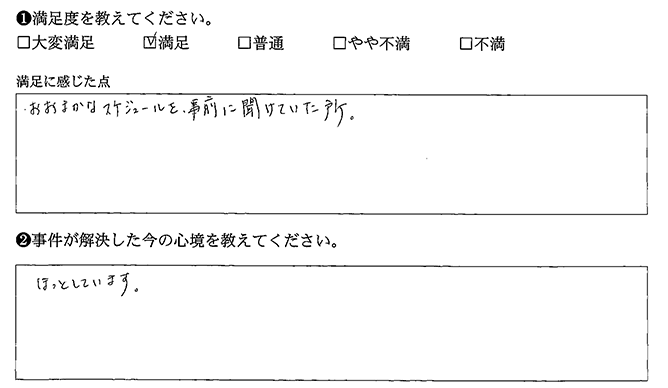 ❶満足度を教えてください。
□大変満足 ☑満足 □普通 □やや不満 □不満
満足に感じた点
・おおまかなスケジュールを、事前に聞けていた所。
❷事件が解決した今の心境を教えてください。
ほっとしています。